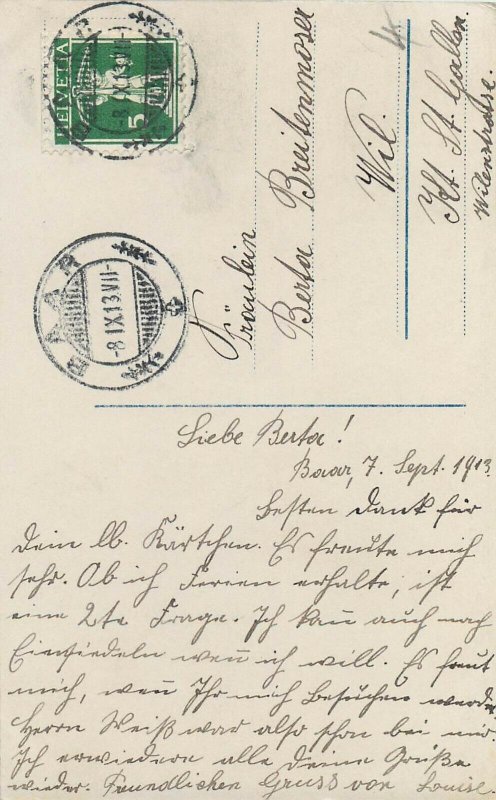 HELVETIA
5
BAAR
-8.IX.13.VII-
BAAR
-8.IX.13.VII-
4
Fräulein
Berta Breitenmoser
Wil.
Kt. St. Gallen.
Wilenstrasse.
Liebe Berta!
Baar, 7. Sept. 1913.
Besten Dank für
Dein lb. Kärtchen. Es freute mich
sehr. Ob ich Ferien erhalte, ist
eine 2te Frage. Ich kan̄ auch nach
Einsiedeln wen̄ ich will. Es freut
mich, wen̄ Ihr mich besuchen werdet
Herrn Weiß war also schon bei mir.
Ich erwiedere alle deine Grüße
wieder. Freundlichen Gruss von Louise.